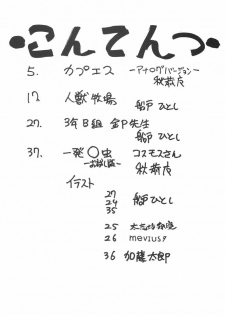 ・こんてんつ・
5. カプエス ーアナログバージョンー
秋蕎茂
17. 人獣牧場
船戸ひとし
27. 3年B組 金P先生
船戸ひとし
37. 一発〇虫 コスモスさん
秋蕎茂
イラスト
27
24
35
船戸ひとし
25
26 mevius9
36 加藤太郎